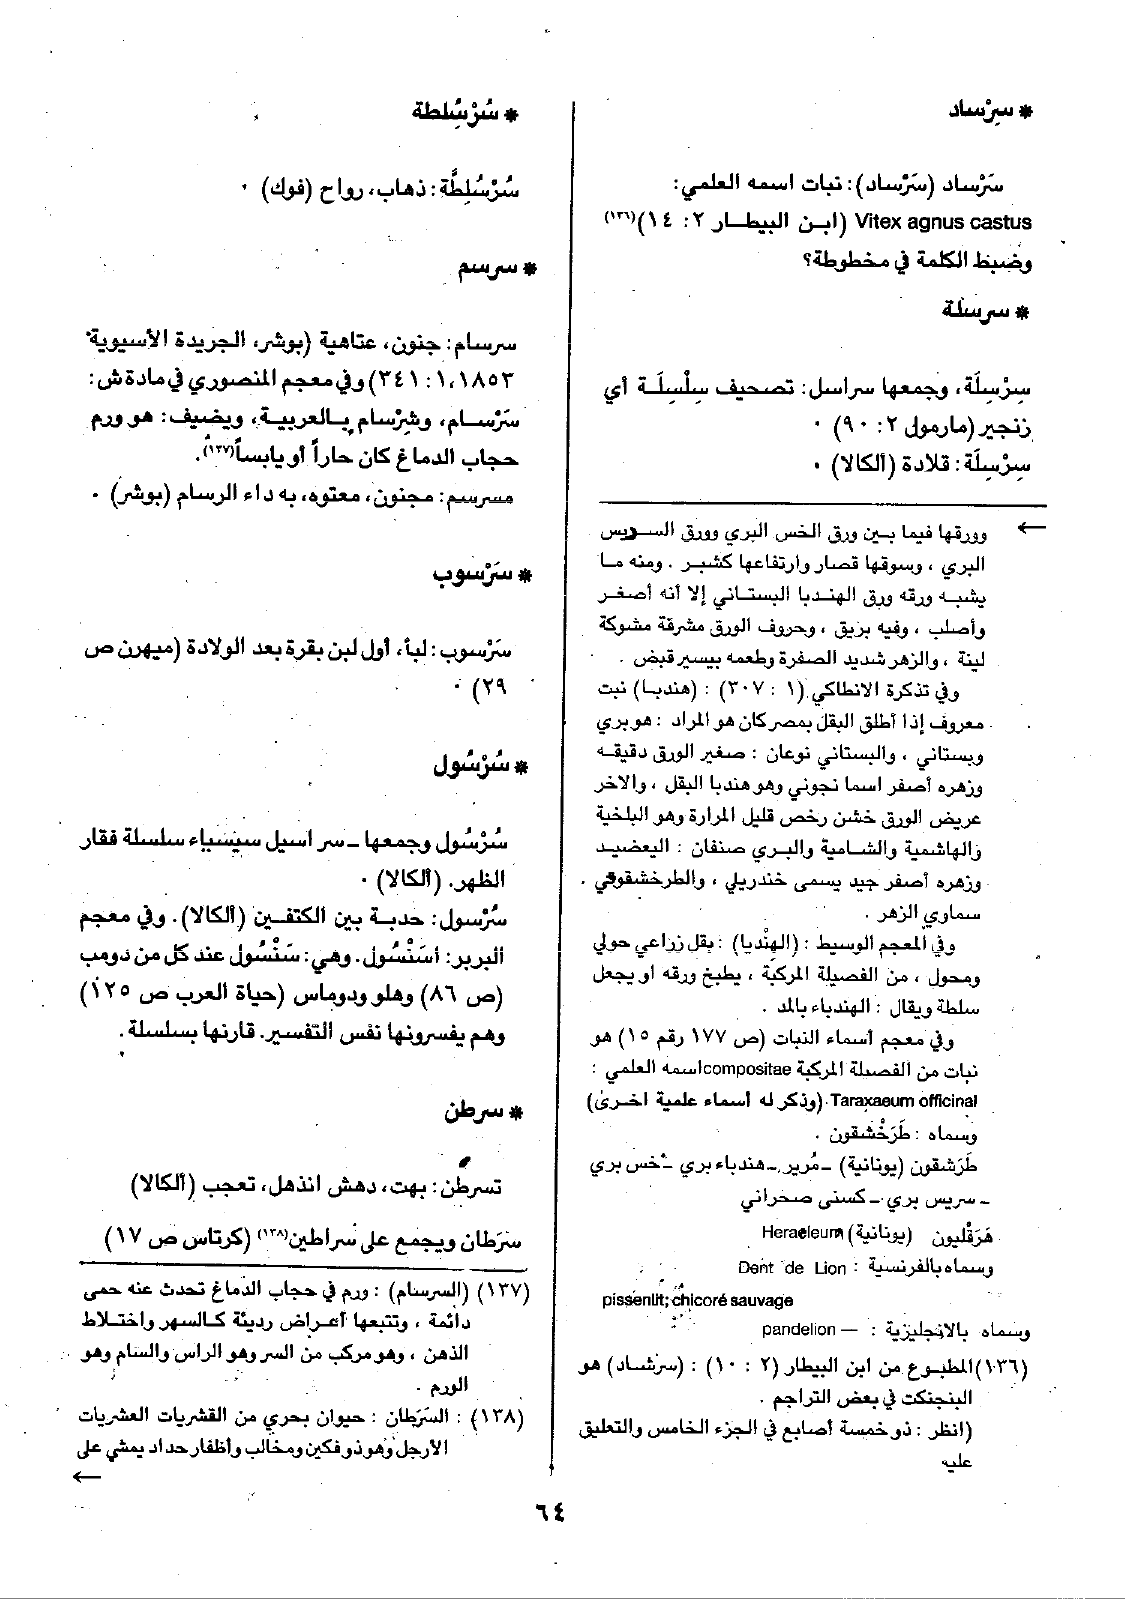 * سِرْساد
سَرْساد (سَرْساد): نبات اسمه العلمي:
Vitex agnus castus (ابن البيطار ٢: ١٤)(١٣٦)
وضبط الكلمة في مخطوطة؟
* سرسلة
سِرْسِلَة، وجمعها سراسل: تصحيف سِلْسِلَة أي
زنجير (مارمول ٢: ٩٠) .
سِرْسِلَة: قلادة (ألكالا) .
← وورقها فيما بين ورق الخس البري وورق السريس
البري ، وسوقها قصار وارتفاعها كشبر . ومنه ما
يشبه ورقه ورق الهندبا البستاني إلا أنه أصغر
وأصلب ، وفيه بريق ، وحروف الورق مشرقة مشوكة
لينة ، والزهر شديد الصفرة وطعمه بيسير قبض .
وفي تذكرة الانطاكي (١ : ٣٠٧) : (هندبا) نبت
معروف إذا أطلق البقل بمصر كان هو المراد : هو بري
وبستاني ، والبستاني نوعان : صغير الورق دقيقه
وزهره أصفر اسما نجوني وهو هندبا البقل ، والآخر
عريض الورق خشن رخص قليل المرارة وهو البلخية
والهاشمية والشامية والبري صنفان : اليعضيد
وزهره أصفر جيد يسمى خندريلي ، والطرخشقوقي
سماوي الزهر .
وفي المعجم الوسيط : (الهِنْدِبا) : بقل زراعي حولي
ومحول ، من الفصيلة المركبة ، يطبخ ورقه أو يجعل
سلطة ويقال : الهندباء بالمد .
وفي معجم أسماء النبات (ص ١٧٧ رقم ١٥) هو
نبات من الفصيلة المركبة compositae اسمه العلمي :
Taraxaeum officinal (وذكر له أسماء علمية اخرى)
وسماه : طَرَخْشَقون .
طَرَشقون (يونانية) – مُرير – هندباء بري – خس بري
– سريس بري – كسنى صحراني
هَرَقْليون (يونانية) Heraeleum
وسماه بالفرنسية : Dent de Lion
pissenlit; chicoré sauvage
وسماه بالانجليزية : — pandelion
(١٣٦) المطبوع من ابن البيطار (٢ : ١٠) : (سرشاد) هو
البنجنكت في بعض التراجم .
(انظر : ذو خمسة أصابع في الجزء الخامس والتعليق
عليه
* سُرْسُلِطة
سُرْسُلِطَّة: ذهاب، رواح (فوك) .
* سرسم
سرسام: جنون، عتاهية (بوشر، الجريدة الأسيوية
١٨٥٣،١: ٣٤١) وفي معجم المنصوري في مادة ش:
سَرْسام، وشِرْسام بالعربية، ويضيف: هو ورم
حجاب الدماغ كان حاراً أو يابساً(١٣٧).
مسرسم: مجنون، معتوه، به داء الرسام (بوشر) .
* سَرْسوب
سَرْسوب: لبأ، أول لبن بقرة بعد الولادة (ميهرن ص
٢٩) .
* سُرْسُول
سُرْسُول وجمعها – سراسيل سيسياء سلسلة فقار
الظهر. (ألكالا) .
سُرْسول: حدبة بين الكتفين (ألكالا). وفي معجم
البربر: أسَنْسُول. وهي: سَنْسُول عند كل من دومب
(ص ٨٦) وهلو ودوماس (حياة العرب ص ١٢٥)
وهم يفسرونها نفس التفسير. قارنها بسلسلة.
* سرطن
تسرطن: بهت، دهش انذهل، تعجب (ألكالا)
سَرَطان ويجمع على سراطين(١٣٨) (كرتاس ص ١٧)
(١٣٧) (السرسام) : ورم في حجاب الدماغ تحدث عنه حمى
دائمة ، وتتبعها أعراض رديئة كالسهر واختلاط
الذهن ، وهو مركب من السر وهو الراس والسام وهو
الورم .
(١٣٨) : السَرَطان : حيوان بحري من القشريات العشريات
الأرجل وهو ذو فكين ومخالب وأظفار حداد يمشي على
←
٦٤